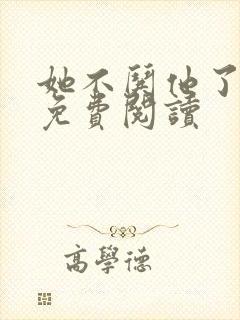 她不鬧他了
免費閱讀
高學德